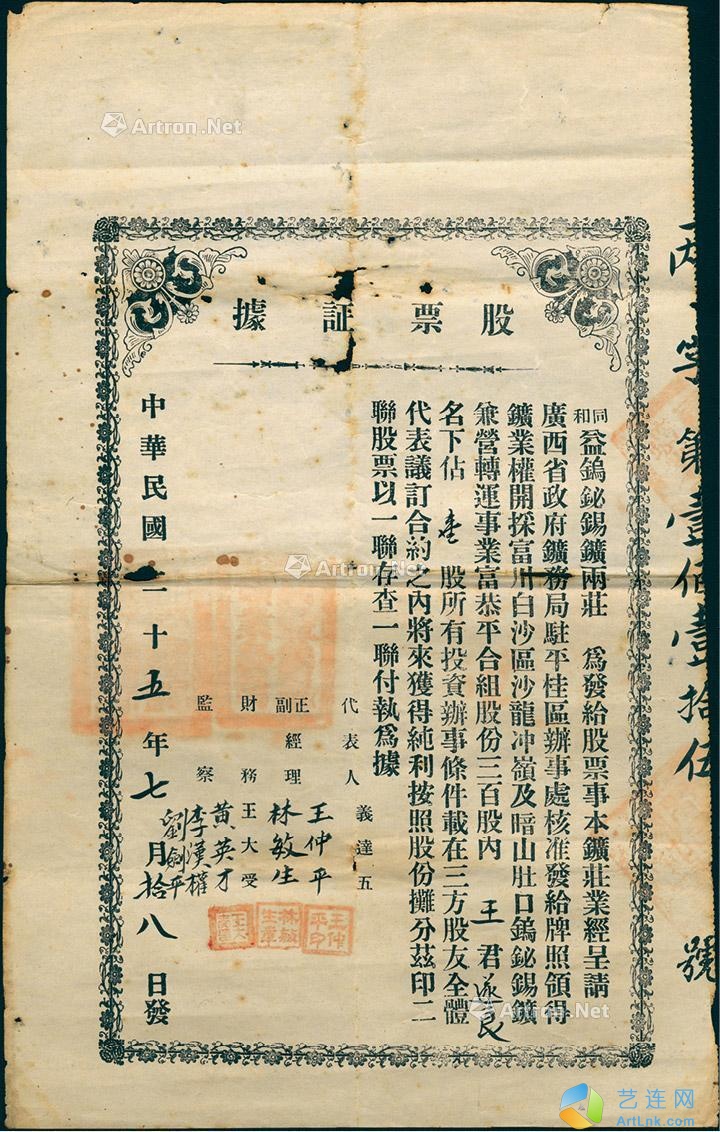 股票証據
同和益鎢鉍錫鑛兩莊 為發給股票事本鑛莊業經呈請
廣西省政府鑛務局駐平桂區辦事處核准發給牌照領得
鑛業權開採富川白沙區沙龍冲嶺及暗山肚口鎢鉍錫鑛
兼營轉運事業富恭平合組股份三百股內 王君遂良
名下佔壹股所有投資辦事條件載在三方股友全體
代表議訂合約之內將來獲得純利按照股份攤分茲印二
聯股票以一聯存查一聯付執為據
代表人義達五
正副經理 王仲平 林敏生
財務王大受
監察 黃英才 李漢權 劉劍平
中華民國二十五年七月拾八日發
字第壹佰壹拾伍號
王仲平印
林敏生章
Artron.Net
Artron.Net
Artron.Net
Artron.Net
艺连网
ArtLnk.com